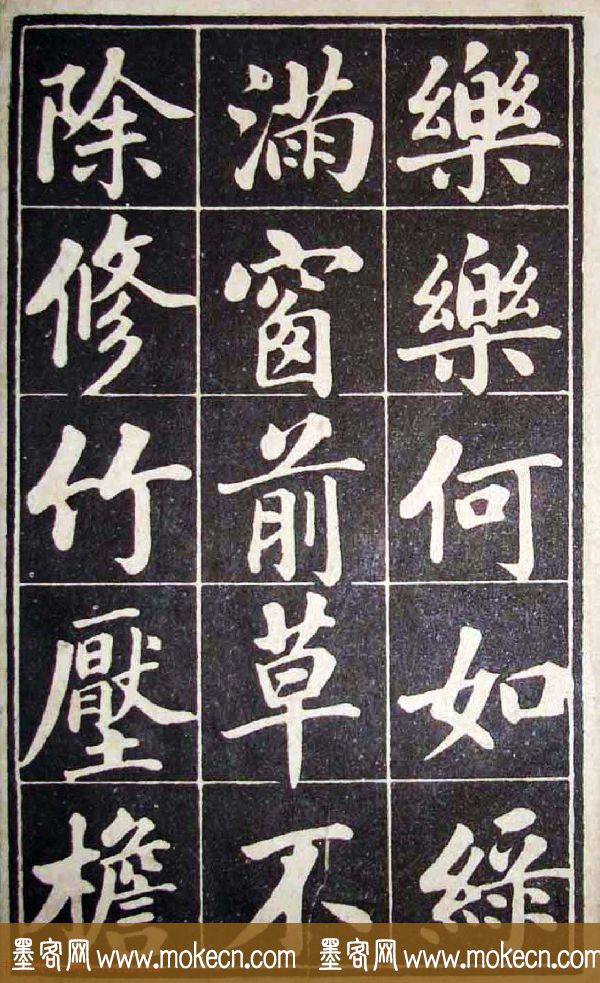 樂樂何如綠
滿窗前草不
除修竹壓檐
墨客网 www.mokecn.com 墨客网 www.mokecn.com